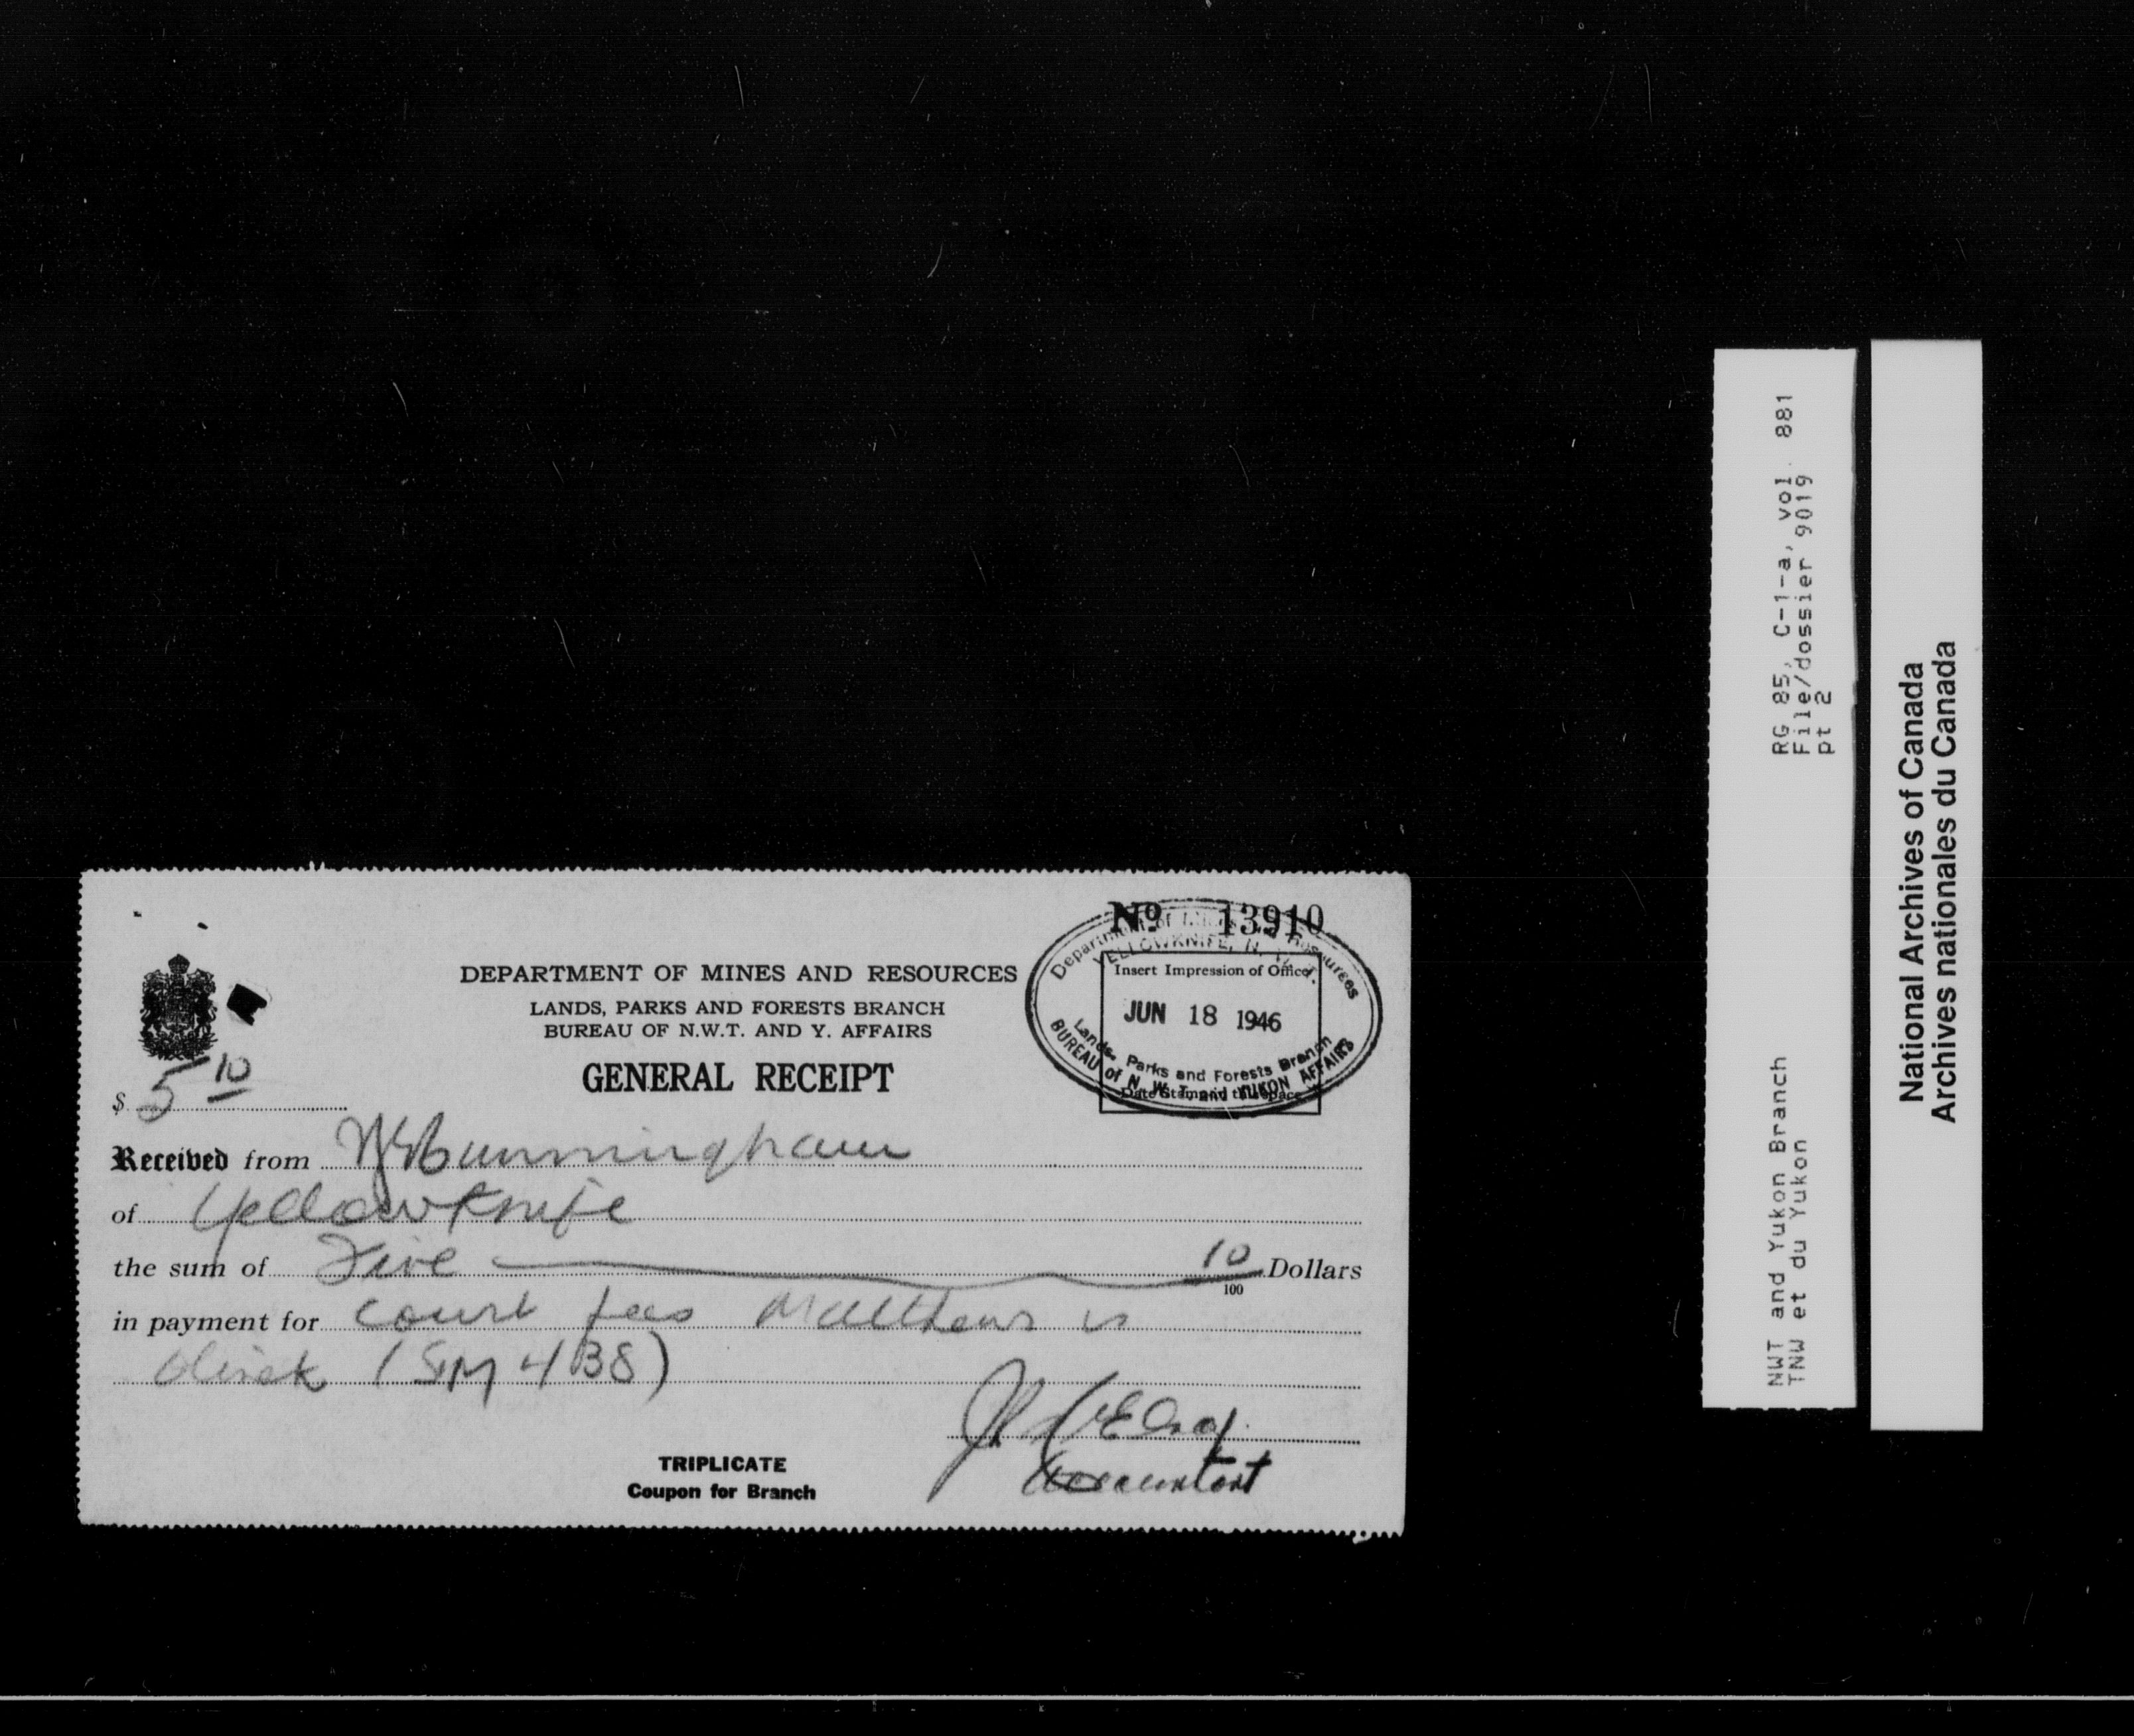 Nº 13910
Department of Mines and Resources
YELLOWKNIFE, N.W.T.
Insert Impression of Office
JUN 18 1946
Lands, Parks and Forests Branch
BUREAU of N.W.T. and YUKON AFFAIRS
Date Stamp in this space
DEPARTMENT OF MINES AND RESOURCES
LANDS, PARKS AND FORESTS BRANCH
BUREAU OF N.W.T. AND Y. AFFAIRS
GENERAL RECEIPT
$ 5 10
Received from Cunningham
of Yellowknife
the sum of Five 10/100 Dollars
in payment for court fees Matthews vs
(SM 4 138)
Accountant
TRIPLICATE
Coupon for Branch
RG 85, C-1-a, vol. 881
File/dossier 9019
pt 2
NWT and Yukon Branch
TNW et du Yukon
National Archives of Canada
Archives nationales du Canada